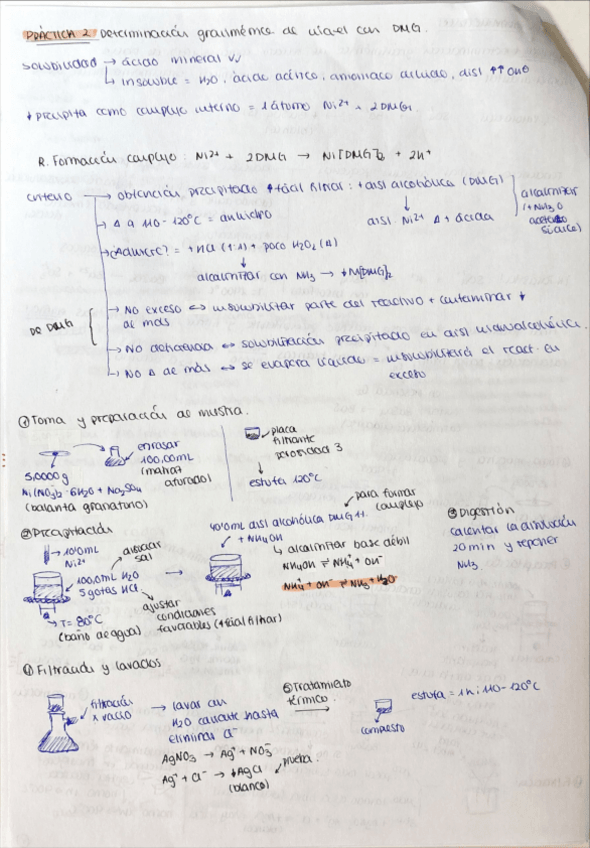 PRÁCTICA 2 Determinación gravimétrica de níquel con DMG.
solubilidad → ácido mineral VV
↳ insoluble = H2O, ácido acético, amoniaco diluido, disl ↑↑ OH⊖
↓ precipita como complejo interno = 1 átomo Ni2+ + 2DMG
R. Formación complejo: Ni2+ + 2DMG → Ni[DMG]2 + 2H+
criterio → obtención precipitado ↑ fácil filtrar: + disl alcohólica (DMG)
disl Ni2+ Δ + ácida
alcalinizar (+ NH3 o acetato sódico)
→ Δ a 110-120°C = anhidro
→ ¿Adulter? = + HCl (1:1) + poco H2O2 (Δ)
alcalinizar con NH3 → ↓Ni[DMG]2
DE DMG
→ No exceso ↔ insolubilizar parte del reactivo + contaminar ↓
de más
→ No deficiencia ↔ solubilización precipitado en disl hidroalcohólica.
→ No Δ de más ↔ se evapora líquido = insolubilizará el react. en
exceso
① Toma y preparación de muestra.
5,0000g
Ni(NO3)2 · 6H2O + Na2SO4
(balanza granatario)
enrasar
100,00mL
(matraz
aforado)
placa
filtrante
porosidad 3
estufa 120°C
② Precipitación
10'0mL
Ni2+
disociar
sal
100,0mL H2O
5 gotas HCl
T = 80°C
(baño de agua)
ajustar
condiciones
favorables (+ fácil filtrar)
40'0mL disl alcohólica DMG 1%.
+ NH4OH
para formar
complejo
↳ alcalinizar base débil
NH4OH ⇌ NH4+ + OH-
NH4+ + OH- ⇌ NH3 + H2O
③ Digestión
calentar la disolución
20 min y reponer
NH3
④ Filtración y lavados
filtración
x vacío
→ lavar con
H2O caliente hasta
eliminar Cl-
AgNO3 → Ag+ + NO3-
Ag+ + Cl- → ↓AgCl
(blanco)
prueba.
⑤ Tratamiento
térmico.
compuesto
estufa = 1h; 110-120°C